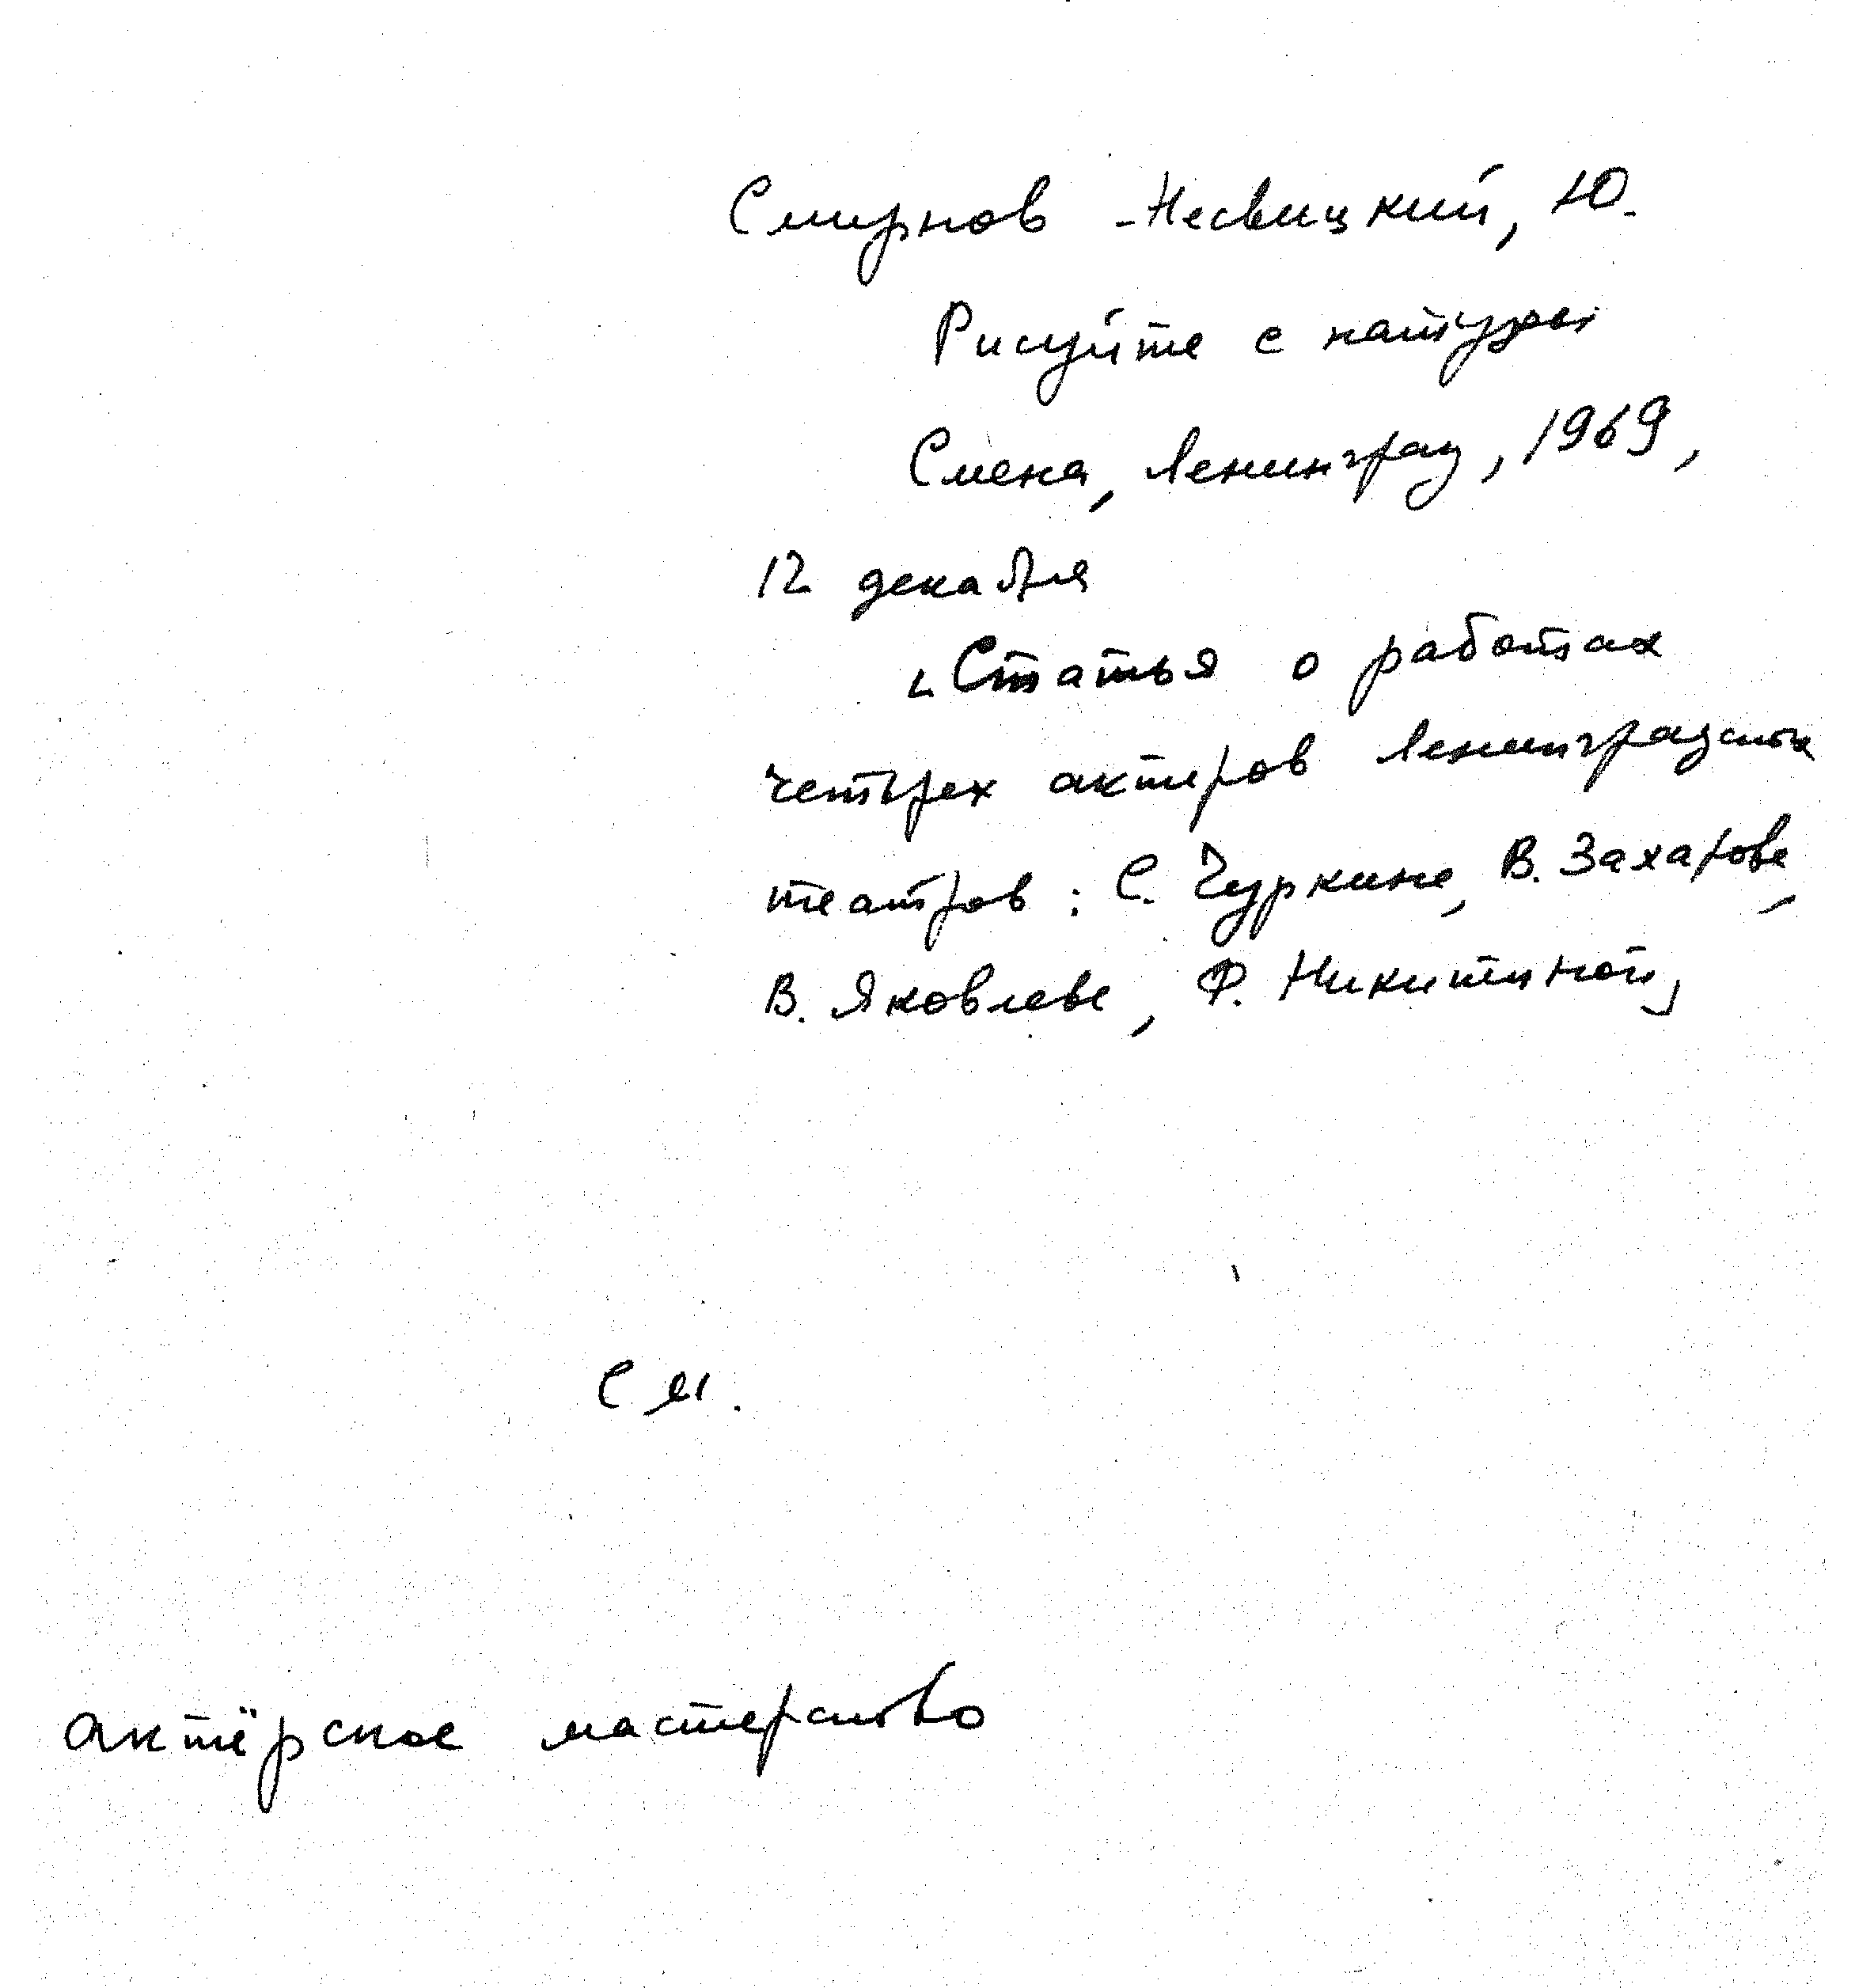 Смирнов-Несвицкий, Ю.
Рисуйте с натуры
Смена, Ленинград, 1969,
12 декабря
[Статья о работах
четырех актеров Ленинградских
театров: С. Чуркине, В. Захарове,
В. Яковлеве, Ф. Никитиной]
См.
актёрское мастерство